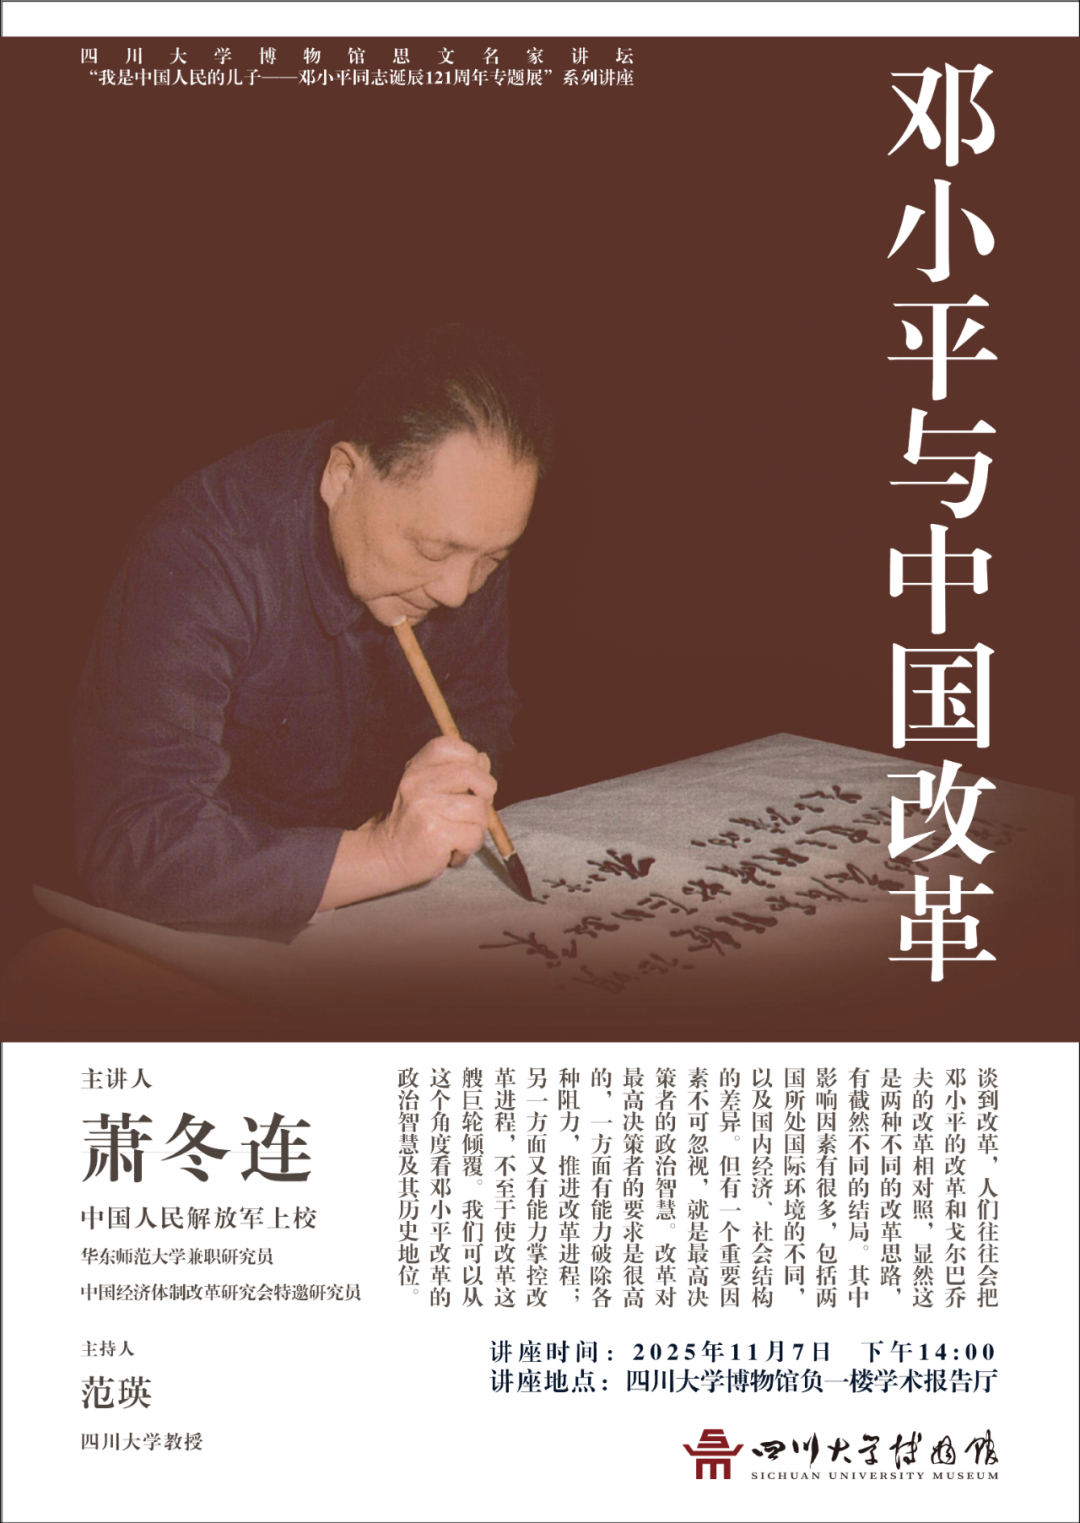 四川大学博物馆思文名家讲坛
“我是中国人民的儿子——邓小平同志诞辰121周年专题展”系列讲座
邓小平与中国改革
主讲人
萧冬连
中国人民解放军上校
华东师范大学兼职研究员
中国经济体制改革研究会特邀研究员
主持人
范瑛
四川大学教授
谈到改革，人们往往会把
邓小平的改革和戈尔巴乔
夫的改革相对照，显然这
是两种不同的改革思路，
有截然不同的结局。其中
影响因素有很多，包括两
国所处国际环境的不同，
以及国内经济、社会结构
的差异。但有一个重要因
素不可忽视，就是最高决
策者的政治智慧。改革对
最高决策者的要求是很高
的，一方面有能力破除各
种阻力，推进改革进程；
另一方面又有能力掌控改
革进程，不至于使改革这
艘巨轮倾覆。我们可以从
这个角度看邓小平改革的
政治智慧及其历史地位。
讲座时间：2025年11月7日 下午14:00
讲座地点：四川大学博物馆负一楼学术报告厅
四川大学博物馆
SICHUAN UNIVERSITY MUSEUM